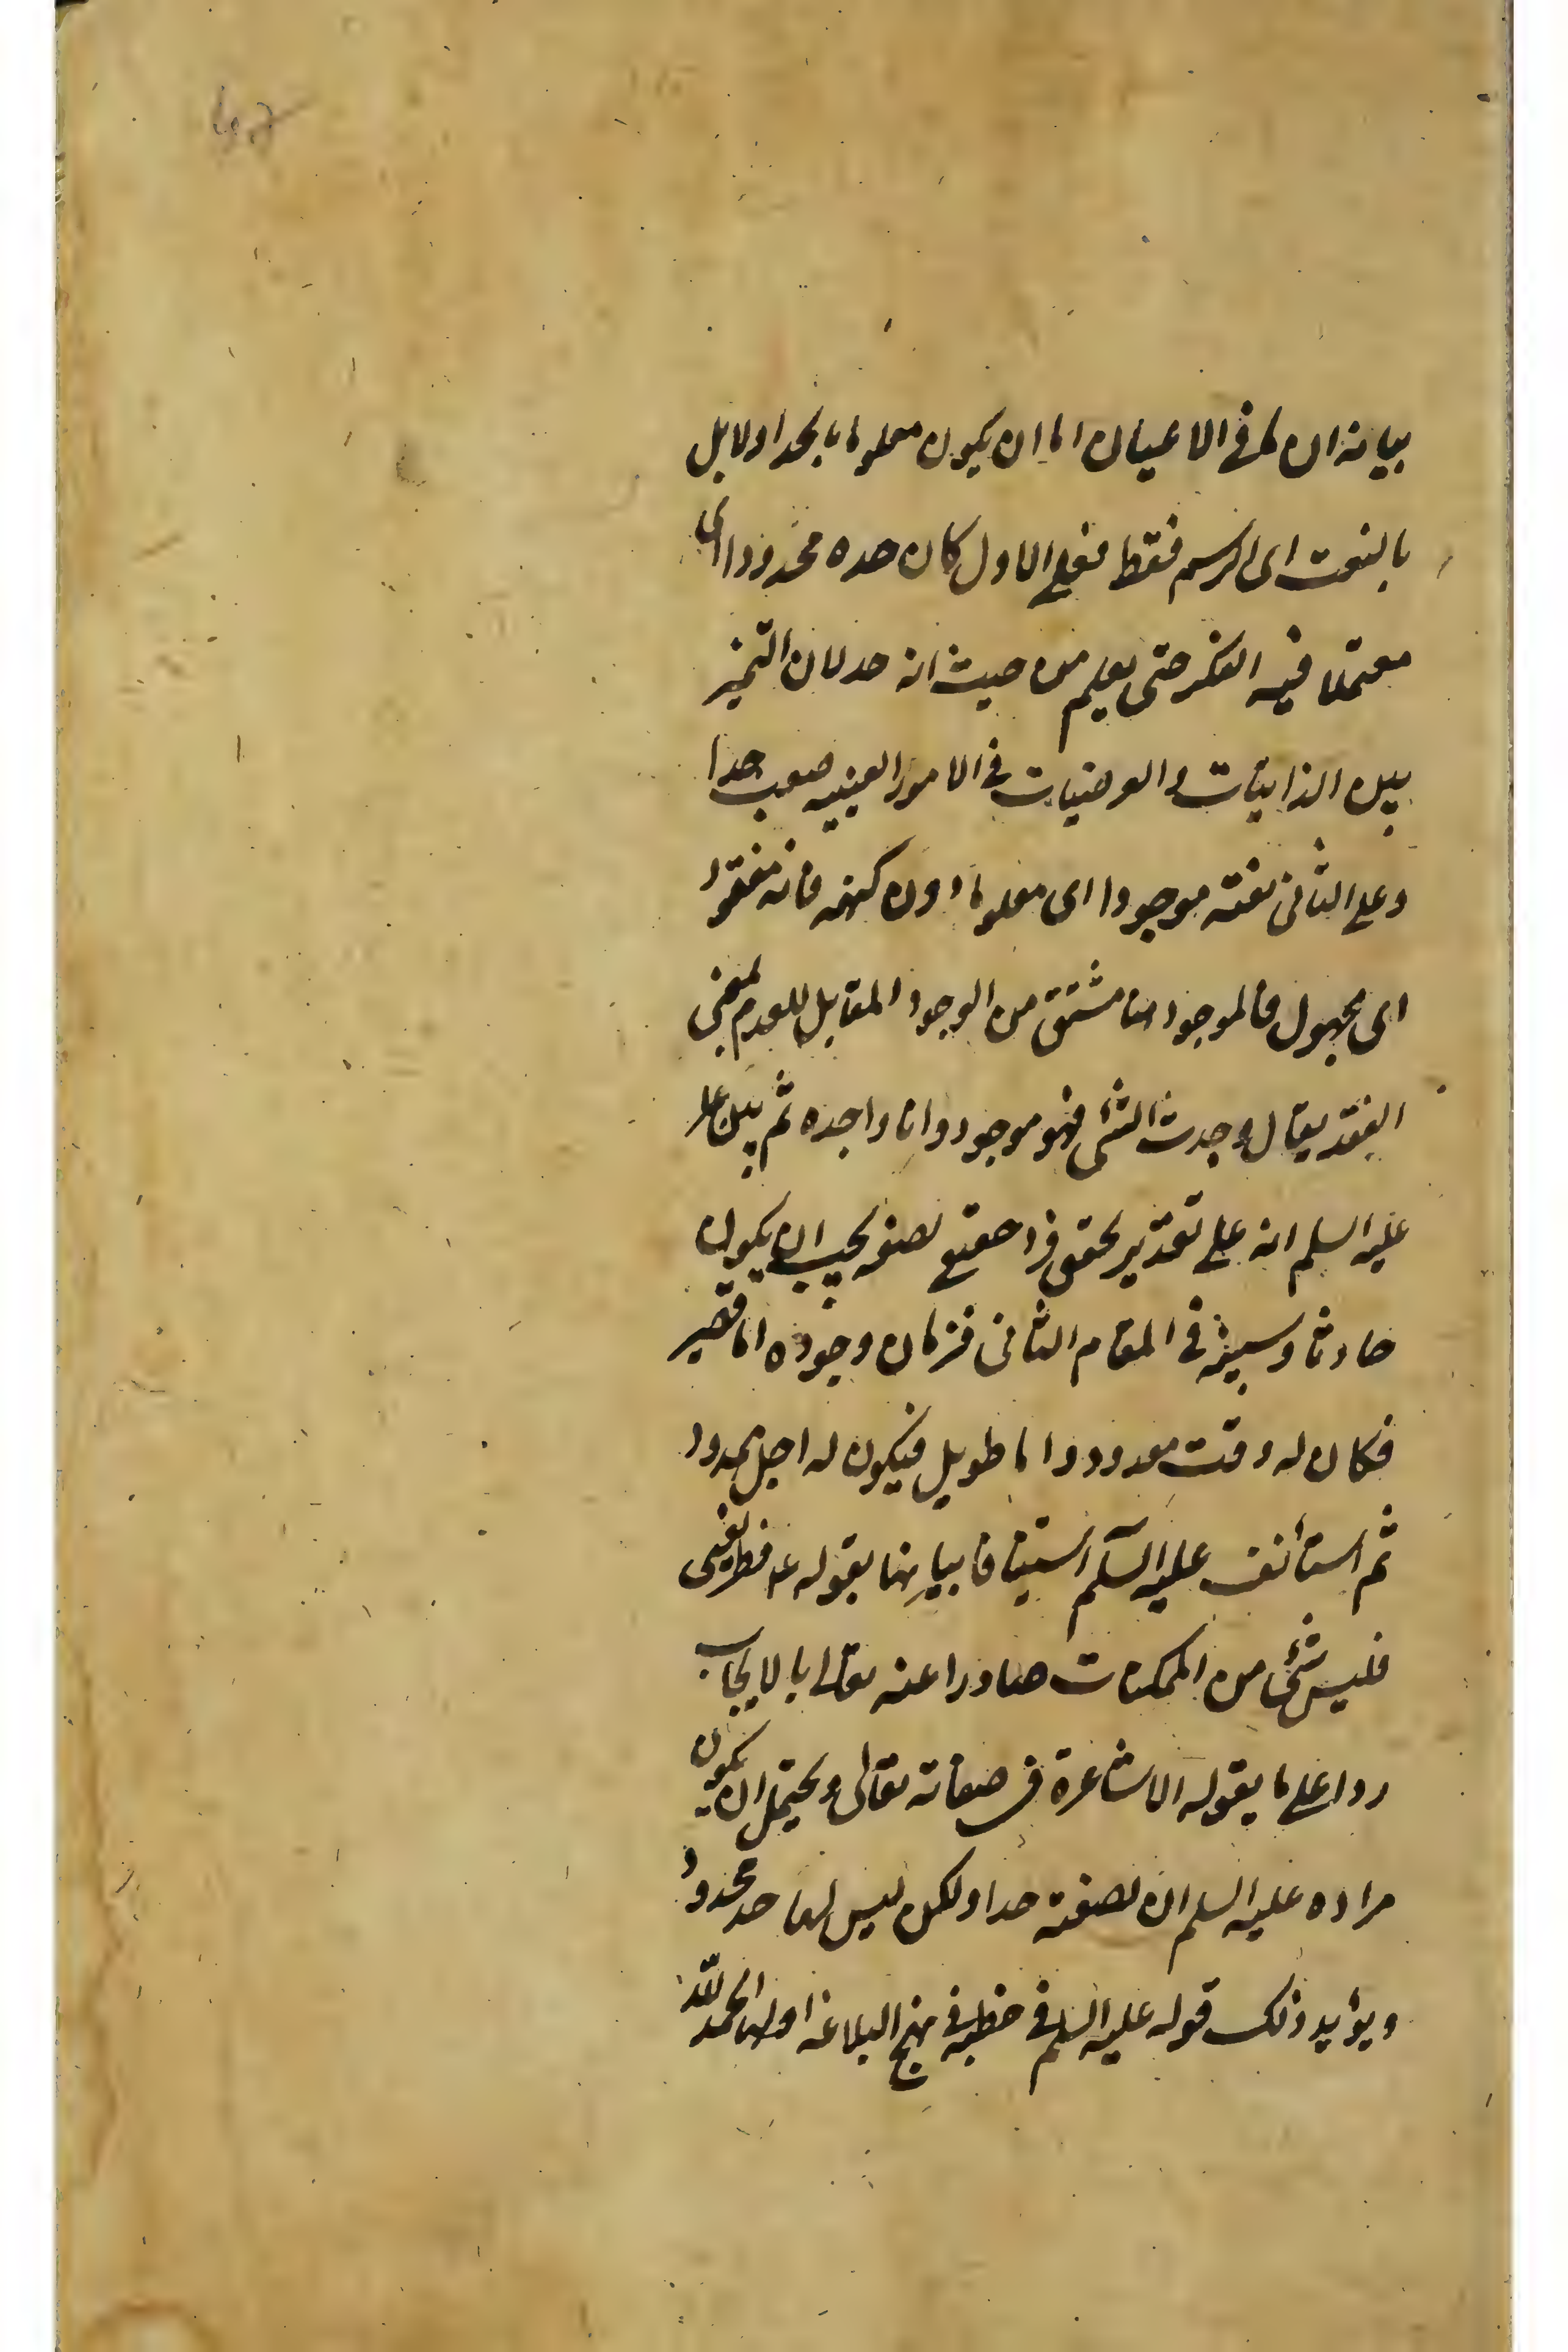 بيانه ان ما في الاعيان اما ان يكون معلوما بالحد او لا بل
بالنعت اى الرسم فقط فعلى الاول كان حده محدودا اى
معتملا فيه الفكر حتى يعلم من حيث انه حد لان التميز
بين الذاتيات والعرضيات في الامور العينيه صعب جدا
وعلى الثاني نعته موجودا اى معلوما دون كنهه فانه مفقود
اى مجهول فالموجود هنا مشتق من الوجود المقابل للعدم بمعنى
الفقد يقال وجدت الشئ فهو موجود وانا واجده ثم بين
عليه السلم انه على تقدير تحقق فرد حقيقى لصفه يجب ان يكون
حادثا وسيبينه في المقام الثاني فزمان وجوده اما قصير
فكان له وقت معدود واما طويل فيكون له اجل ممدود
ثم استأنف عليه السلم استينافا بيانيا بقوله ع فطر يعنى
فليس شئ من الممكنات صادرا عنه تعالى بالايجاب
ردا على ما يقوله الاشاعرة في صفاته تعالى ويحتمل ان يكون
مراده عليه السلم ان لصفته حدا ولكن ليس لها حد محدود
ويؤيد ذلك قوله عليه السلم في خطبه في نهج البلاغه اولها الحمد لله